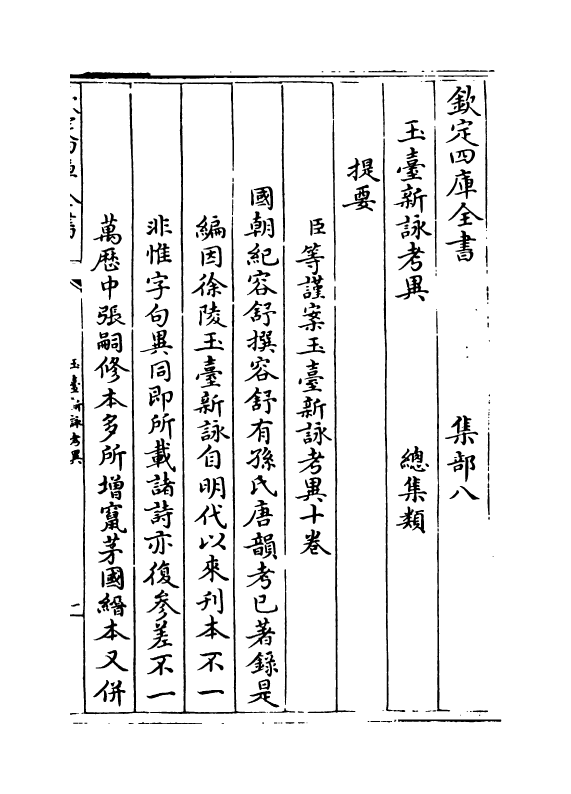 欽定四庫全書 集部八
玉臺新詠考異 總集類
提要
臣等謹案玉臺新詠考異十卷
國朝紀容舒撰容舒有孫氏唐韻考已著錄是
編因徐陵玉臺新詠自明代以來刊本不一
非惟字句異同即所載諸詩亦復參差不一
萬歷中張嗣修本多所增竄茅國縉本又併
玉臺新詠考異